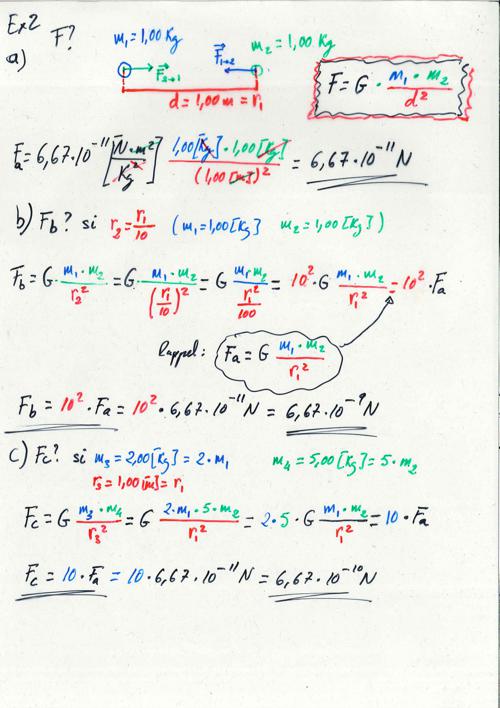 Ex2
F?
m₁ = 1,00 Kg m₂ = 1,00 Kg
a)
F⃗₂→₁ F⃗₁→₂
d = 1,00 m = r₁
F = G · m₁ · m₂ / d²
Fa = 6,67 · 10⁻¹¹ [N · m² / Kg²] 1,00 [Kg] · 1,00 [Kg] / (1,00 [m])² = 6,67 · 10⁻¹¹ N
b) Fb? si r₂ = r₁/10 (m₁ = 1,00 [Kg] m₂ = 1,00 [Kg])
Fb = G · m₁ · m₂ / r₂² = G · m₁ · m₂ / (r₁/10)² = G m₁ m₂ / (r₁²/100) = 10² · G m₁ · m₂ / r₁² = 10² · Fa
Rappel: Fa = G m₁ · m₂ / r₁²
Fb = 10² · Fa = 10² · 6,67 · 10⁻¹¹ N = 6,67 · 10⁻⁹ N
c) Fc? si m₃ = 2,00 [Kg] = 2 · m₁ m₄ = 5,00 [Kg] = 5 · m₂
r₃ = 1,00 [m] = r₁
Fc = G m₃ · m₄ / r₃² = G 2 · m₁ · 5 · m₂ / r₁² = 2 · 5 · G m₁ · m₂ / r₁² = 10 · Fa
Fc = 10 · Fa = 10 · 6,67 · 10⁻¹¹ N = 6,67 · 10⁻¹⁰ N